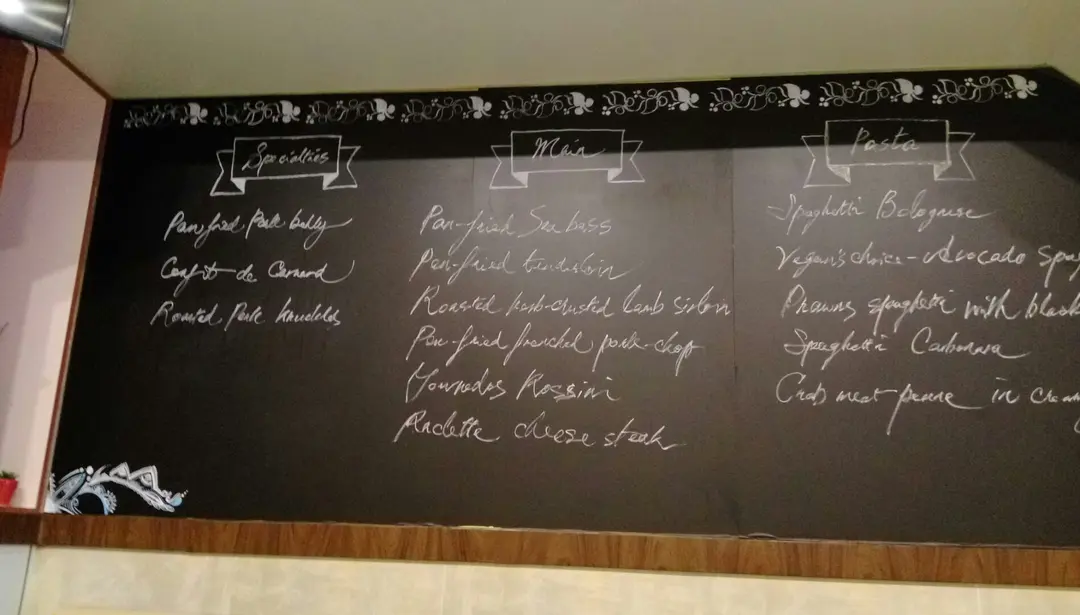 Specialties
Pan fried Pork belly
Confit de Carnard
Roasted Pork knuckles
Main
Pan-fried Sea bass
Pan-fried tenderloin
Roasted herb-crusted lamb sirloin
Pan-fried frenched pork-chop
Tournedos Rossini
Raclette cheese steak
Pasta
Spaghetti Bolognese
Vegan's choice - Avocado
Prawns spaghetti with black
Spaghetti Carbonara
Crab meat penne in